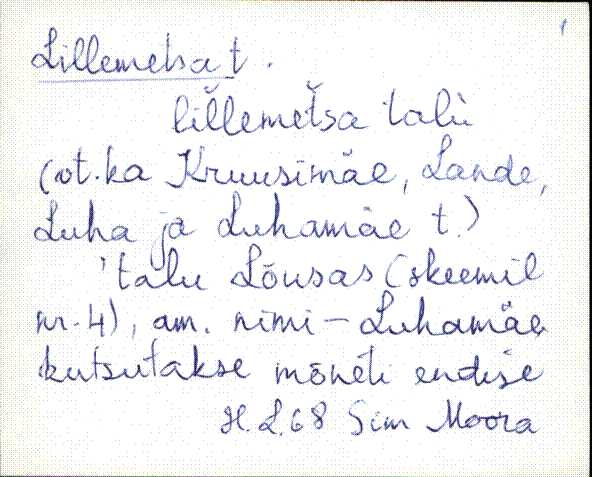 1
Lillemetsa t.
lĭllemĕtsa talù
(vt. ka Kruusimäe, Lande,
Luha ja Luhamäe t.)
'talu Lõusas (skeemil
nr. 4), am. nimi - Luhamäe
kutsutakse mõneti endise
H. L. 68 Sim Moora